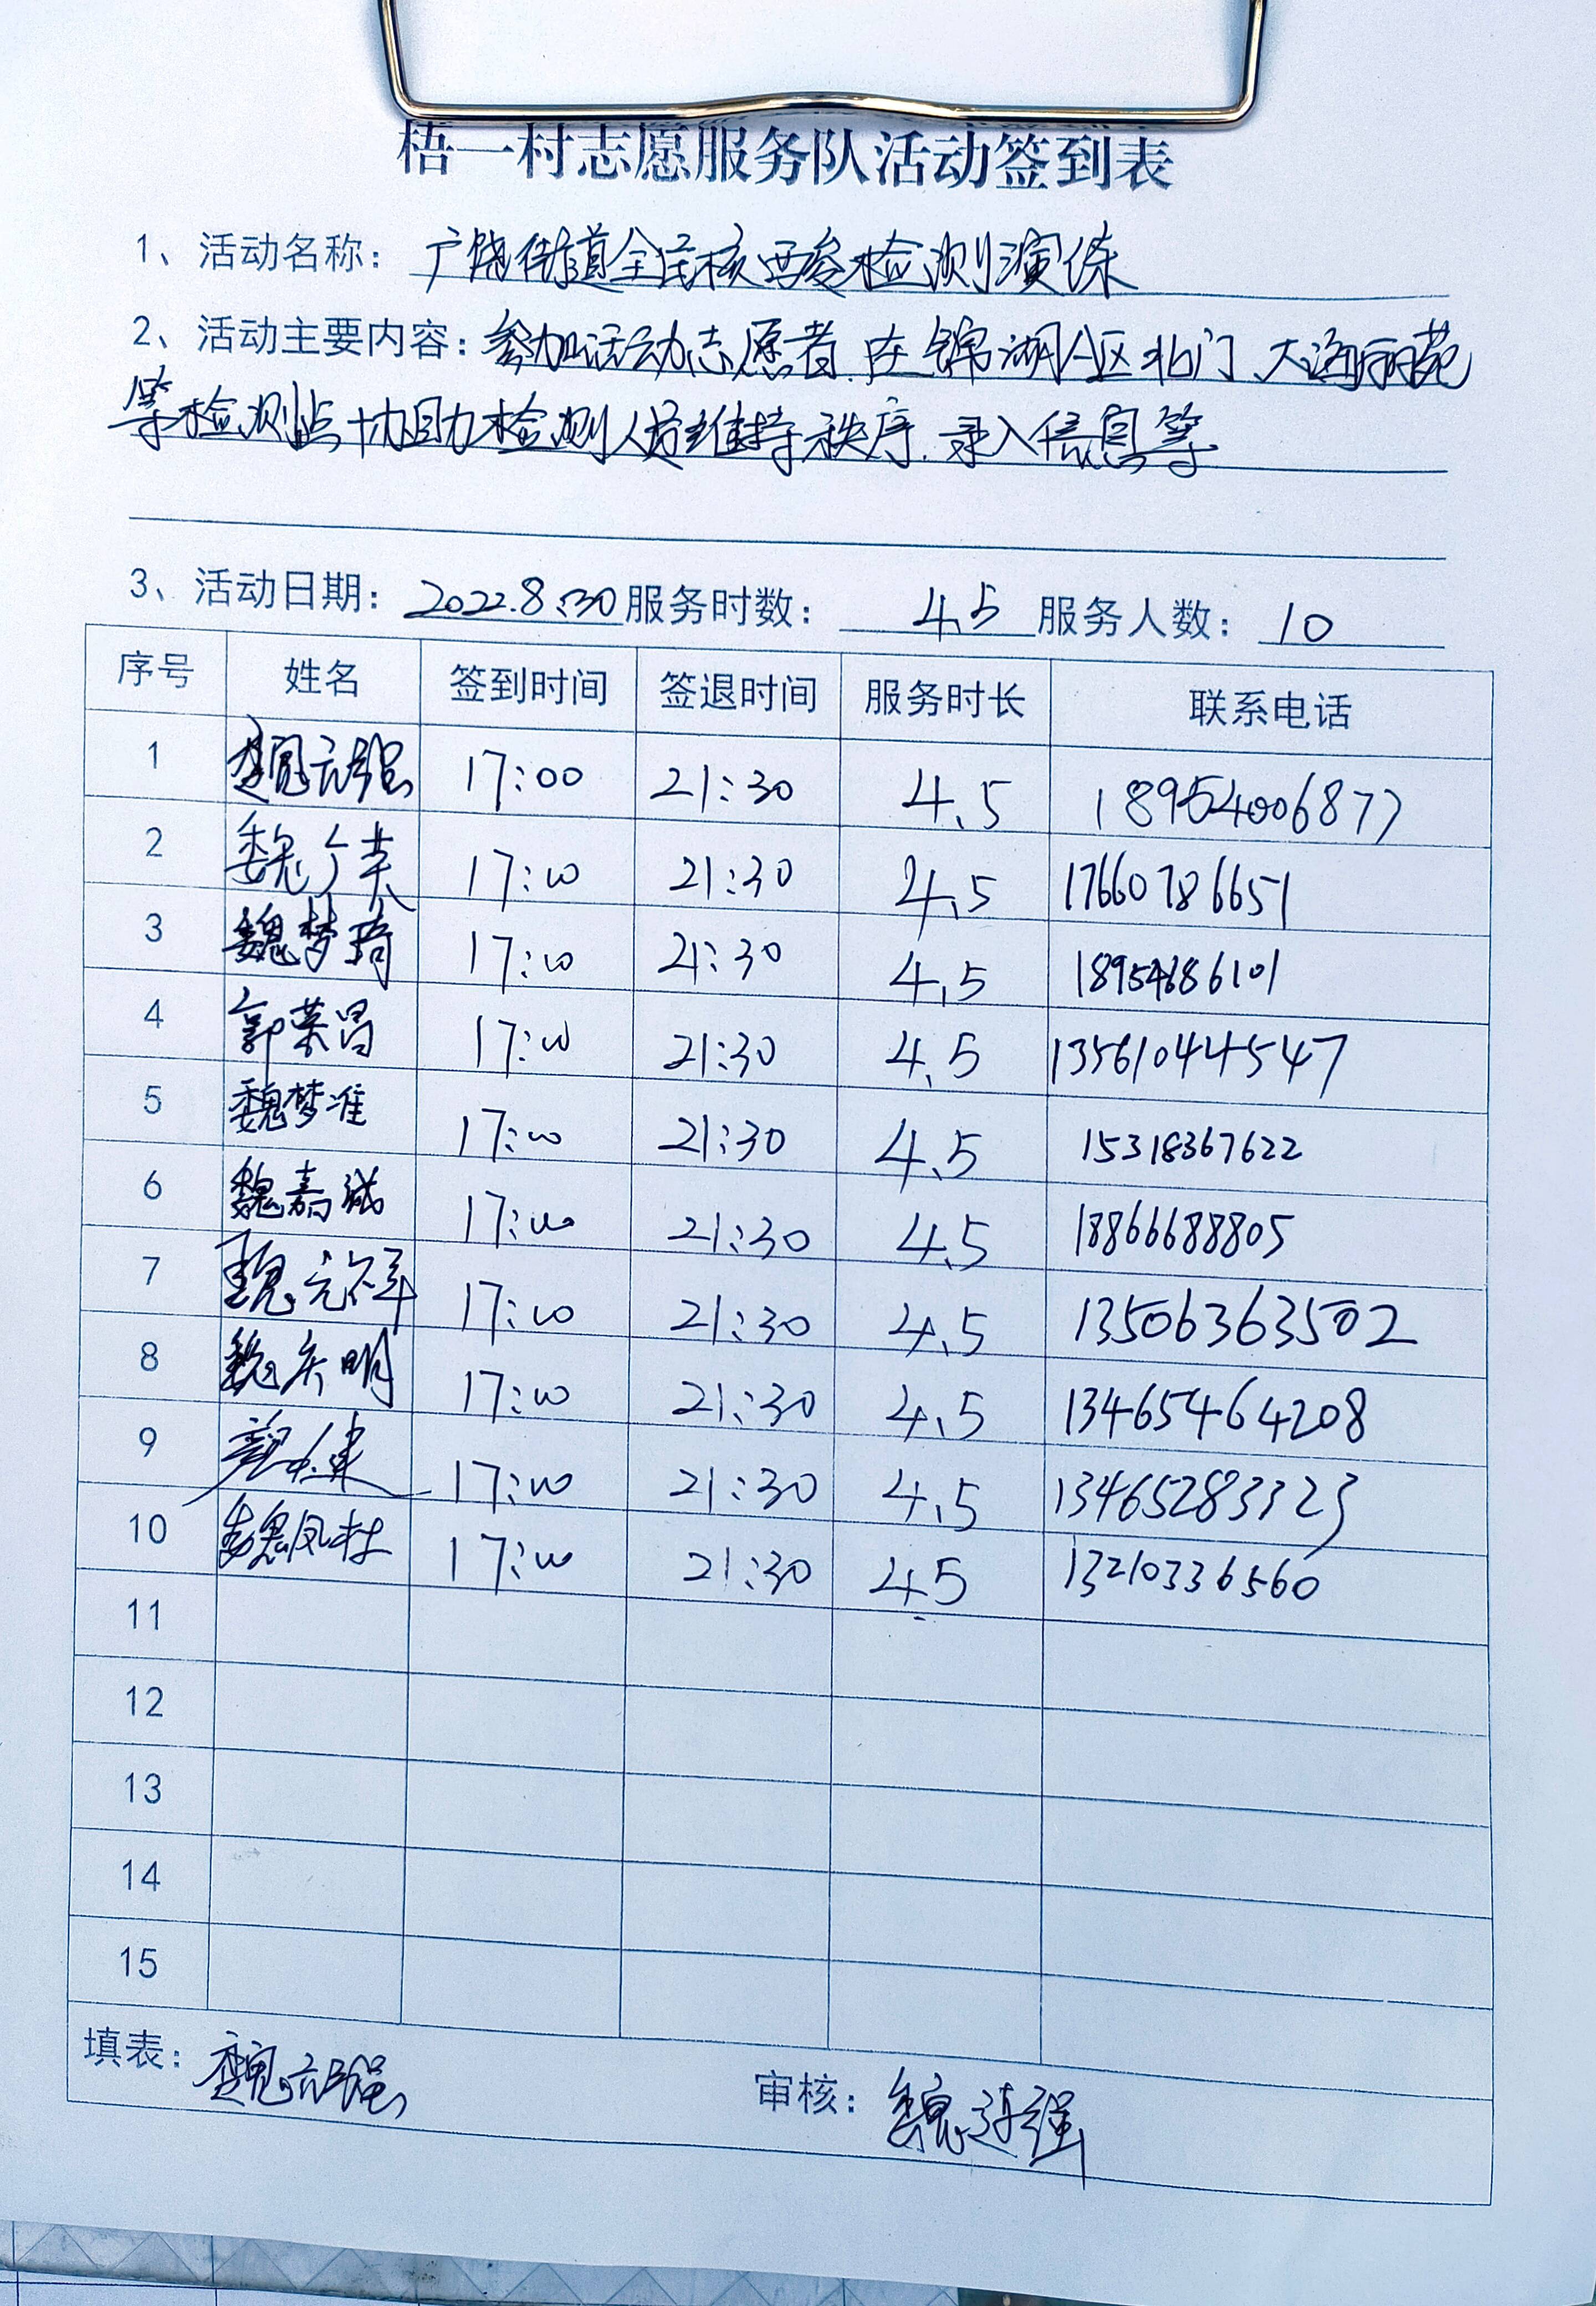 梧一村志愿服务队活动签到表
1、活动名称：广饶街道全民核酸检测演练
2、活动主要内容：参加活动志愿者在锦湖A区北门、大海丽苑
等检测点协助检测人员维持秩序、录入信息等
3、活动日期：2022.8.30 服务时数：4.5 服务人数：10
序号 姓名 签到时间 签退时间 服务时长 联系电话
1 魏元强 17:00 21:30 4.5 18954006877
2 魏 17:00 21:30 4.5 17660786651
3 魏梦琦 17:00 21:30 4.5 18954686101
4 郭荣昌 17:00 21:30 4.5 13561044547
5 魏梦准 17:00 21:30 4.5 15318367622
6 魏嘉诚 17:00 21:30 4.5 18866688805
7 魏元祥 17:00 21:30 4.5 13506363502
8 魏庆明 17:00 21:30 4.5 13465464208
9 17:00 21:30 4.5 13465283323
10 魏凤村 17:00 21:30 4.5 13210336560
11
12
13
14
15
填表：魏元强 审核：魏连强